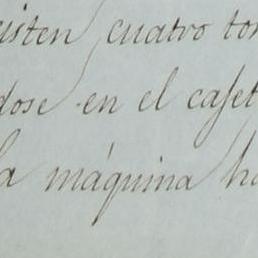 isten, cuatro to
dose en el cafet
la máquina ha